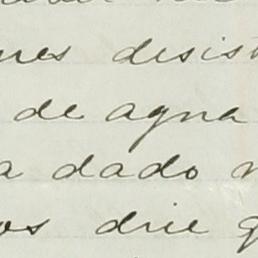 nes desist
de agua
a dado n
os drie q